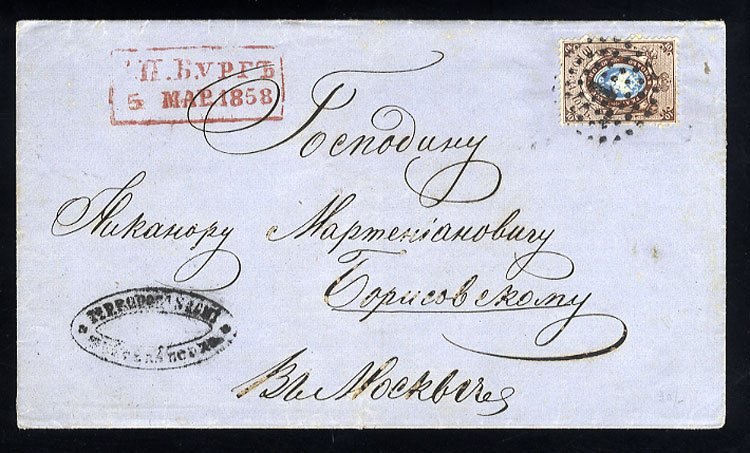 С.П.БУРГЪ
5 МАР.1858
Господину
Никанору Мартеніановичу
Борисовскому
Въ Москвѣ